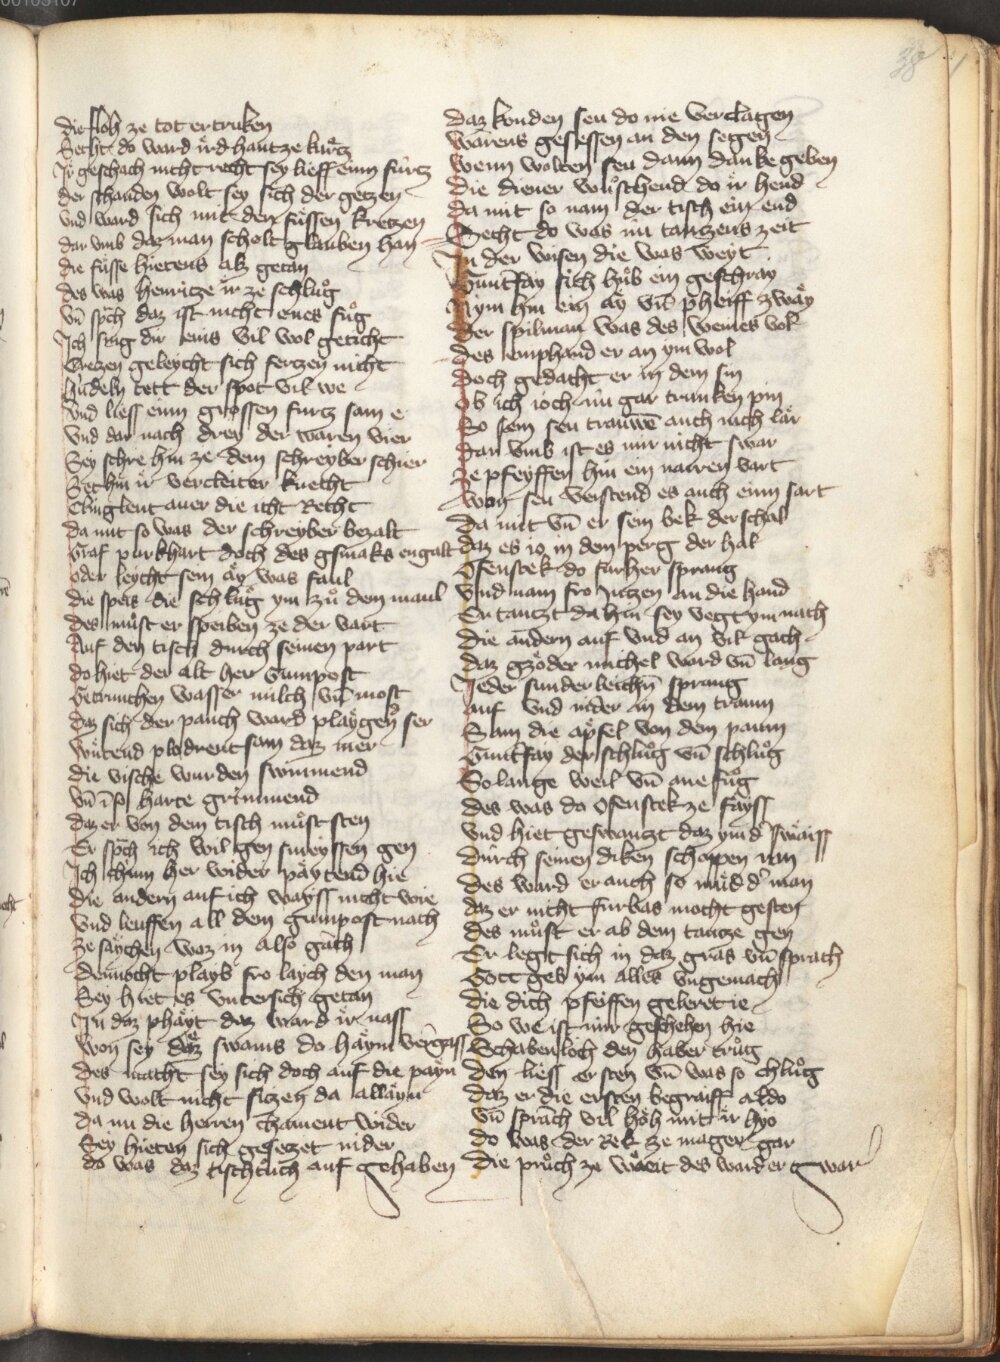 00105107
38
die floͤh ze tot ertruken
Secht do ward ir d hantze kurtz
Ir geschach nicht recht sey lieff einn furtz
der schanden wolt sey sich der getzen
vnd ward sich mit den fuͤssen kretzen
dar vmb daz man scholt glauben han
die fuͤsse hietens als getan
des was henritze ir ze schluͦg
vn̄ sp̄ch daz ist nicht enes fuͦg
Ich sing dir eins vil wol geticht
Vretzen geleycht sich fertzen nicht
hudeln tett der spot vil we
vnd liess einn grossen furtz sam e
vnd dar nach drey der waren vier
Sey schre hin ze dem schreyber schier
Sechin ir vercleiter knecht
Clinglent auer die icht Recht
da mit so was der schreyber bezalt
Graf purkhart doch des gsmaks engalt
oder leycht sein aͤy was faul
die speis die schluͦg ym zuͦ dem maul
des muͦst er speiben ze der vart
Auf den tisch durch seinen part
do hiet der alt her Gumpost
Getrunchen wasser milch vn̄ most
daz sich der pauch ward plaͤgen ser
wuͤtend plodrent sam daz mer
die vische wurden swimmend
vn̄ harte grimmend
daz er von dem tisch muͦst sten
Er sp̄ch ich wil gen smeyssen gen
Ich chum her wider paytend hie
die andern auf ich wayss nicht wie
vnd leuffen all dem gumpost nach
ze saychen waz in also gach
dennocht playb fro laych den man
Sey hiet es vntersich getan
In daz phayt daz ward ir nass
won sey daz swams do haym vergass
des macht sey sich doch auf die payn
vnd wolt nicht sitzen da allayn
da nu die herren chament wider
Sey hieten sich gesetzet nider
do was daz tischtuch auf gehaben
daz konden seu do nie verclagen
warens gesessen an den segen
wenn wolten seu dann danke geben
die diener wuͦschend do ir hend
da mit so nam der tisch ein end
Secht do was nu tantzens zeit
In der wisen die was weyt
Guntfay sich huͦb ein geschray
Nym hin ein ay vn̄ pheiff zway
der spilman was des weines vol
des emphand er an ym wol
doch gedacht er in dem sin
Ob ich ioch nu gar trunken pin
So sein seu trauwē auch nich laͤr
dar vmb ist es mir nicht swar
Ze pfeyffen hin ein narren vart
won seu verstend es auch einn fart
da mit vn̄ er sein bek derschal
daz es io in den perg der hal
Ofensteck do furher sprang
vnd nam fro Jutzen an die hand
Er tanczt da hin sey vegt ym nach
die andern auf vnd an vil gach
daz gzoͤder michel ward vn̄ lang
Jeder sunderleichn̄ sprang
auf vnd nider in dem traum
Sam die aͤpfel von dem paum
Guntfay der schluͦg vn̄ schluͦg
So lange weil vn̄ ane fuͦg
des was do Ofenstek ze fayss
vnd hiet geswantzt daz ym d' swaiss
durch seinen diken schoppen ran
des ward er auch so muͤd d' man
daz er nicht furbas mocht gesten
des muͦst er ab dem tantze gen
Er legt sich in daz gras vn̄ sprach
Gott geb ym alles vngemach
die dich pfeiffen geleret ie
So we ist mir geschehen hie
Schabenloch den haber truͦg
den liess er sten vn̄ was so chluͦg
daz er die ersten begraiff aldo
vn̄ sprach vil hoh mit ir hyo
do was der Rek ze mager gar
die pruͦch ze weit des ward er gwar